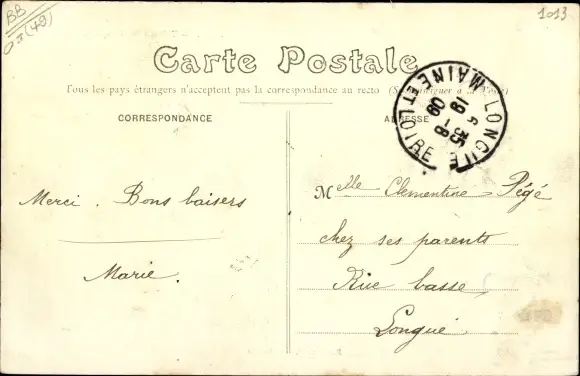 BB
03 (49)
1013
Carte Postale
Tous les pays étrangers n'acceptent pas la correspondance au recto (Se renseigner à la Poste)
CORRESPONDANCE
ADRESSE
LONGUÉ
MAINE ET LOIRE
8-35
18 9
08
Merci. Bons baisers
Marie.
Melle Clementine Pégé
chez ses parents
Rue basse
Longué